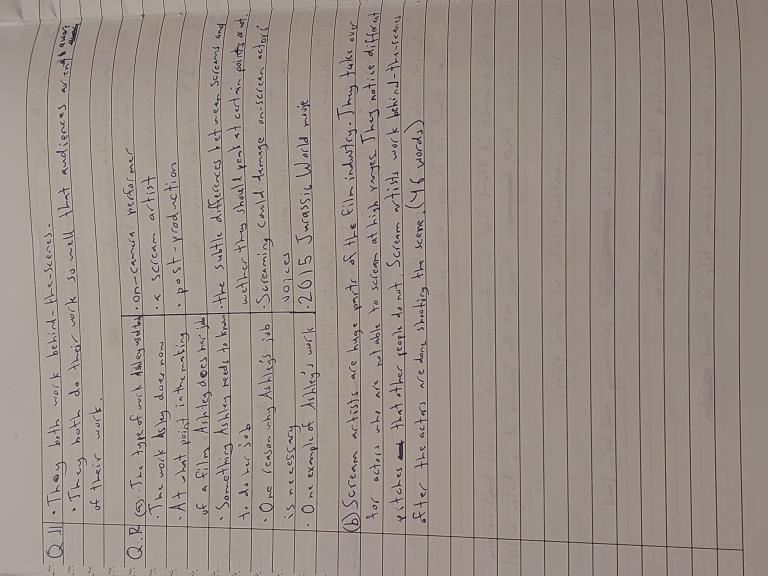 Q.11 • They both work behind-the-scenes.
• They both do their work so well that audiences arent aware
of their work.
Q.12 (a) • The type of work Ashley used to do • on-camera performer
• The work Asley does now • a scream artist
• At what point in the making • post-production
of a film Ashley does her job
• Something Ashley needs to know • the subtle differences between screams and
to do her job wether they should peak at certain points or not.
• One reason why Ashley's job • Screaming could damage on-screen actors'
is necessary voices
• One example of Ashley's work • 2015 Jurassic World movie
(b) Scream artists are huge parts of the film industry. They take over
for actors who are not able to scream at high ranges. They notice different
pitches that other people do not. Scream artists work behind-the-scenes
after the actors are done shooting the scene. (46 words)